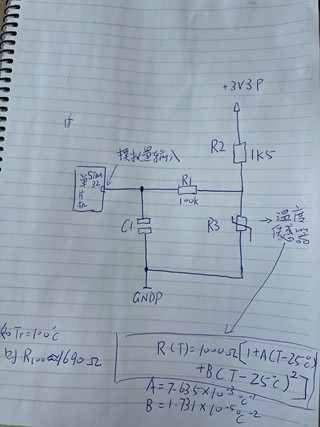 +3V3P
R2
1K5
模拟量输入
STM
32
单
片
机
R1
100k
C1
R3
→温度
传感
GNDP
如Tr=100℃
则 R100≈1690Ω
R(T)=1000Ω[1+A(T-25℃)
+B(T-25℃)²]
A=7.635×10⁻³℃⁻¹
B=1.731×10⁻⁵℃⁻²